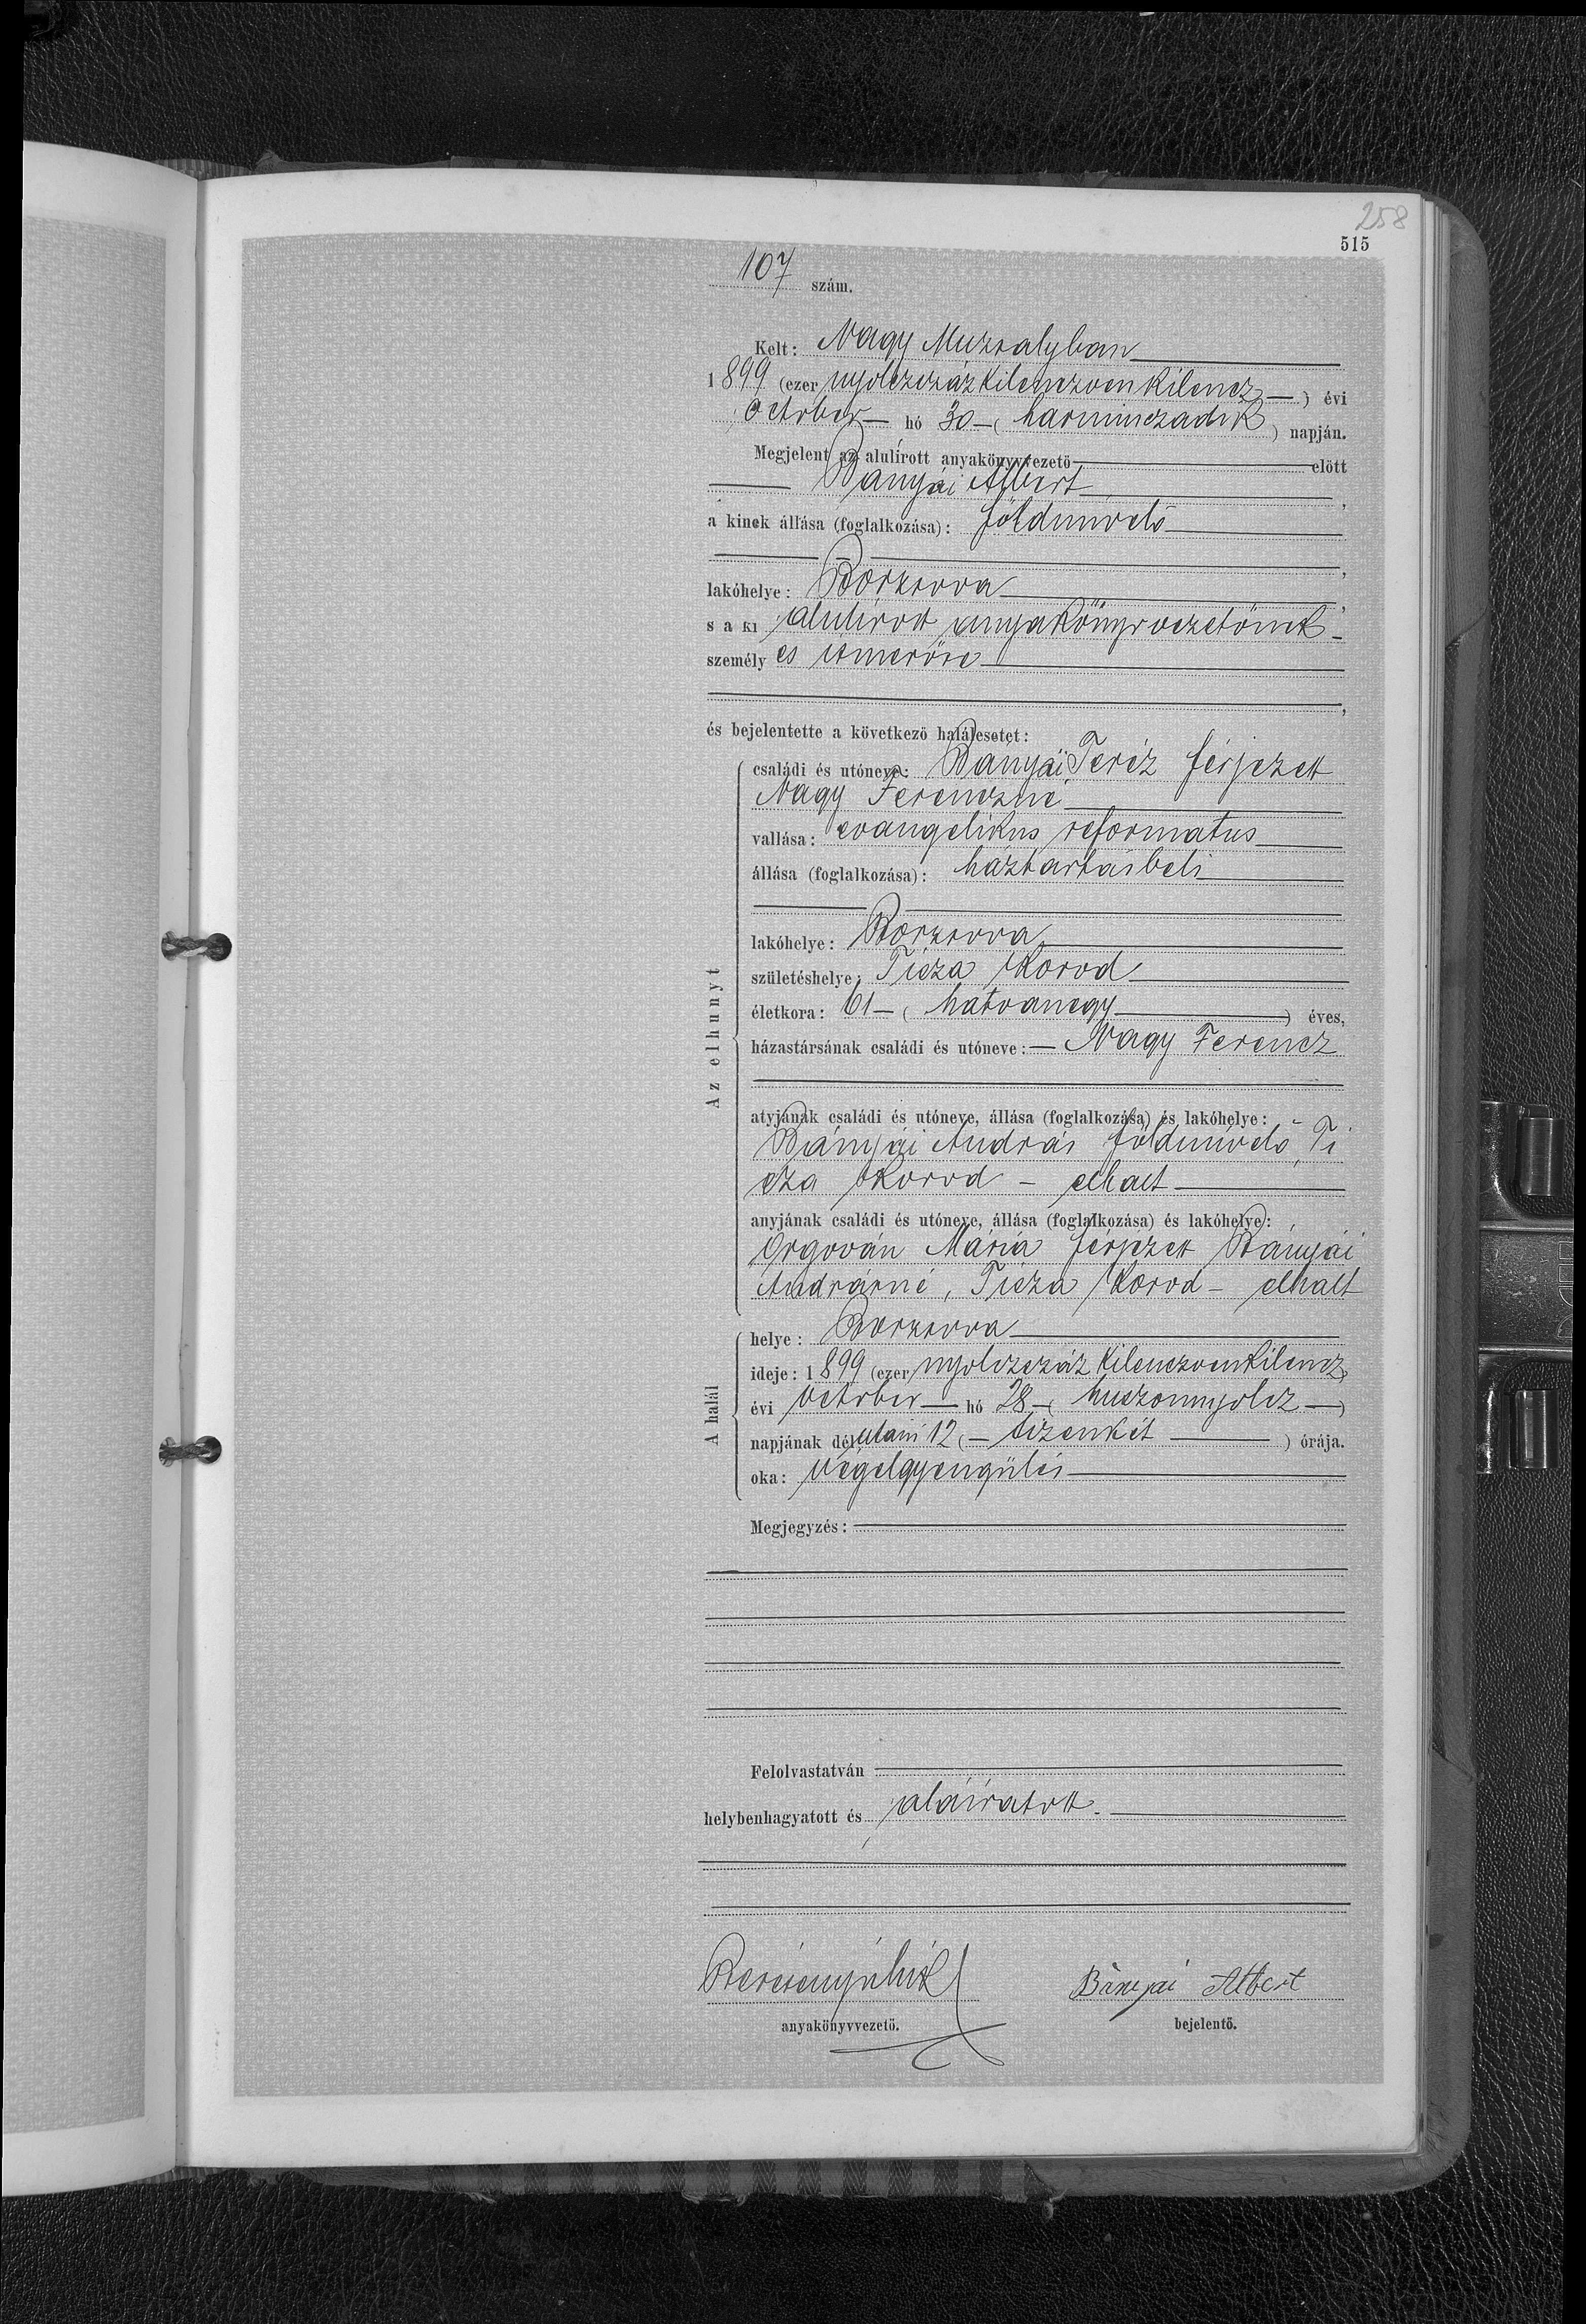 258
515
107 szám.
Kelt: Nagy Muzsalyban
1899 (ezer nyolczszázkilenczvenkilencz —) évi
october — hó 30 — (harminczadik) napján.
Megjelent az alulírott anyakönyvvezető előtt
Bányai Albert,
a kinek állása (foglalkozása): földmívelő
lakóhelye: Borzsova,
s a ki alulírott anyakönyvvezetőnek
személyes ismerőse
és bejelentette a következő halálesetet:
Az elhunyt
családi és utóneve: Bányai Teréz férjezett
Nagy Ferenczné
vallása: evangelikus reformatus
állása (foglalkozása): háztartásbeli
lakóhelye: Borzsova,
születéshelye: Tisza Korod
életkora: 61 — (hatvanegy) éves,
házastársának családi és utóneve: — Nagy Ferencz
atyjának családi és utóneve, állása (foglalkozása) és lakóhelye:
Bányai András földmívelő, Ti
sza Korod — elhalt
anyjának családi és utóneve, állása (foglalkozása) és lakóhelye:
Orgován Mária férjezett Bányai
Andrásné, Tisza Korod — elhalt
A halál
helye: Borzsova
ideje: 1899 (ezer nyolczszáz kilenczvenkilencz)
évi october — hó 28 — (huszonnyolcz —)
napjának délutáni 12 (— tizenkét —) órája.
oka: végelgyengülés
Megjegyzés:
Felolvastatván
helybenhagyatott és aláíratott.
Bányai Albert
anyakönyvvezető.
bejelentő.